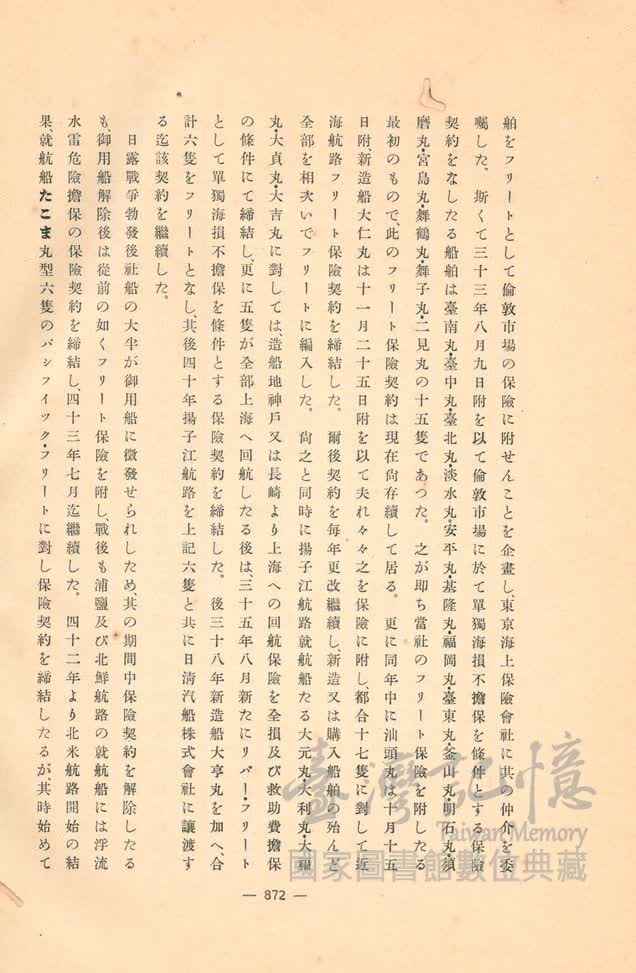 舶をフリートとして倫敦市場の保險に附せんことを企畫し、東京海上保險會社に其の仲介を委
囑した。斯くて三十三年八月九日附を以て倫敦市場に於て單獨海損不擔保を條件とする保險
契約をなしたる船舶は臺南丸・臺中丸・臺北丸・淡水丸・安平丸・基隆丸・福岡丸・臺東丸・釜山丸・明石丸・須
磨丸・宮島丸・舞鶴丸・舞子丸・二見丸の十五隻であつた。之が卽ち當社のフリート保險を附したる
最初のもので、此のフリート保險契約は現在尙存續して居る。更に同年中に汕頭丸は十月十五
日附、新造船大仁丸は十一月二十五日附を以て夫れ々々之を保險に附し、都合十七隻に對して近
海航路フリート保險契約を締結した。爾後契約を每年更改繼續し、新造又は購入船舶の殆んど
全部を相次いでフリートに編入した。尙之と同時に揚子江航路就航船たる大元丸・大利丸・大福
丸・大貞丸・大吉丸に對しては、造船地神戶又は長崎より上海への回航保險を全損及び救助費擔保
の條件にて締結し、更に五隻が全部上海へ回航したる後は、三十五年八月新たにリバー・フリート
として單獨海損不擔保を條件とする保險契約を締結した。後三十八年新造船大亨丸を加へ、合
計六隻をフリートとなし、其後四十年揚子江航路を上記六隻と共に日淸汽船株式會社に讓渡す
る迄該契約を繼續した。
日露戰爭勃發後社船の大半が御用船に徵發せられしため、其の期間中保險契約を解除したる
も、御用船解除後は從前の如くフリート保險を附し、戰後も浦鹽及び北鮮航路の就航船には浮流
水雷危險擔保の保險契約を締結し、四十三年七月迄繼續した。四十二年より北米航路開始の結
果、就航船たこま丸型六隻のパシフイツク・フリートに對し保險契約を締結したるが、其時始めて
— 872 —
臺灣記憶
Taiwan Memory
國家圖書館數位典藏